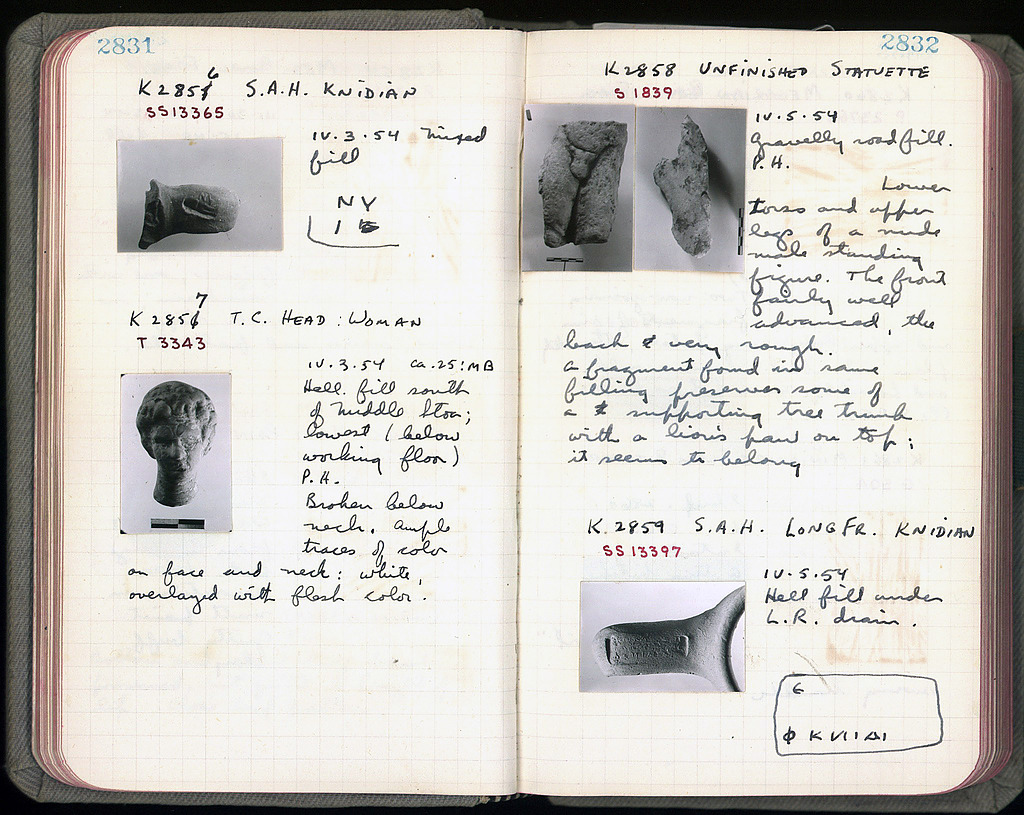 2831
K 2856 S.A.H. KNIDIAN
SS 13365
IV.3.54 Mixed
fill
NY
K 2857 T.C. HEAD: WOMAN
T 3343
IV.3.54 ca. 25: MB
Hell. fill south
of Middle Stoa;
lowest (below
working floor)
P.H.
Broken below
neck. Ample
traces of color
on face and neck: white,
overlayed with flesh color.
2832
K 2858 UNFINISHED STATUETTE
S 1839
IV.5.54
Gravelly road fill.
P.H.
Lower
torso and upper
legs of a nude
male standing
figure. The front
fairly well
advanced, the
back very rough.
A fragment found in same
filling preserves some of
a supporting tree trunk
with a lion's paw on top;
it seems to belong
K. 2859 S.A.H. LONG FR. KNIDIAN
SS 13397
IV.5.54
Hell fill under
L.R. drain.